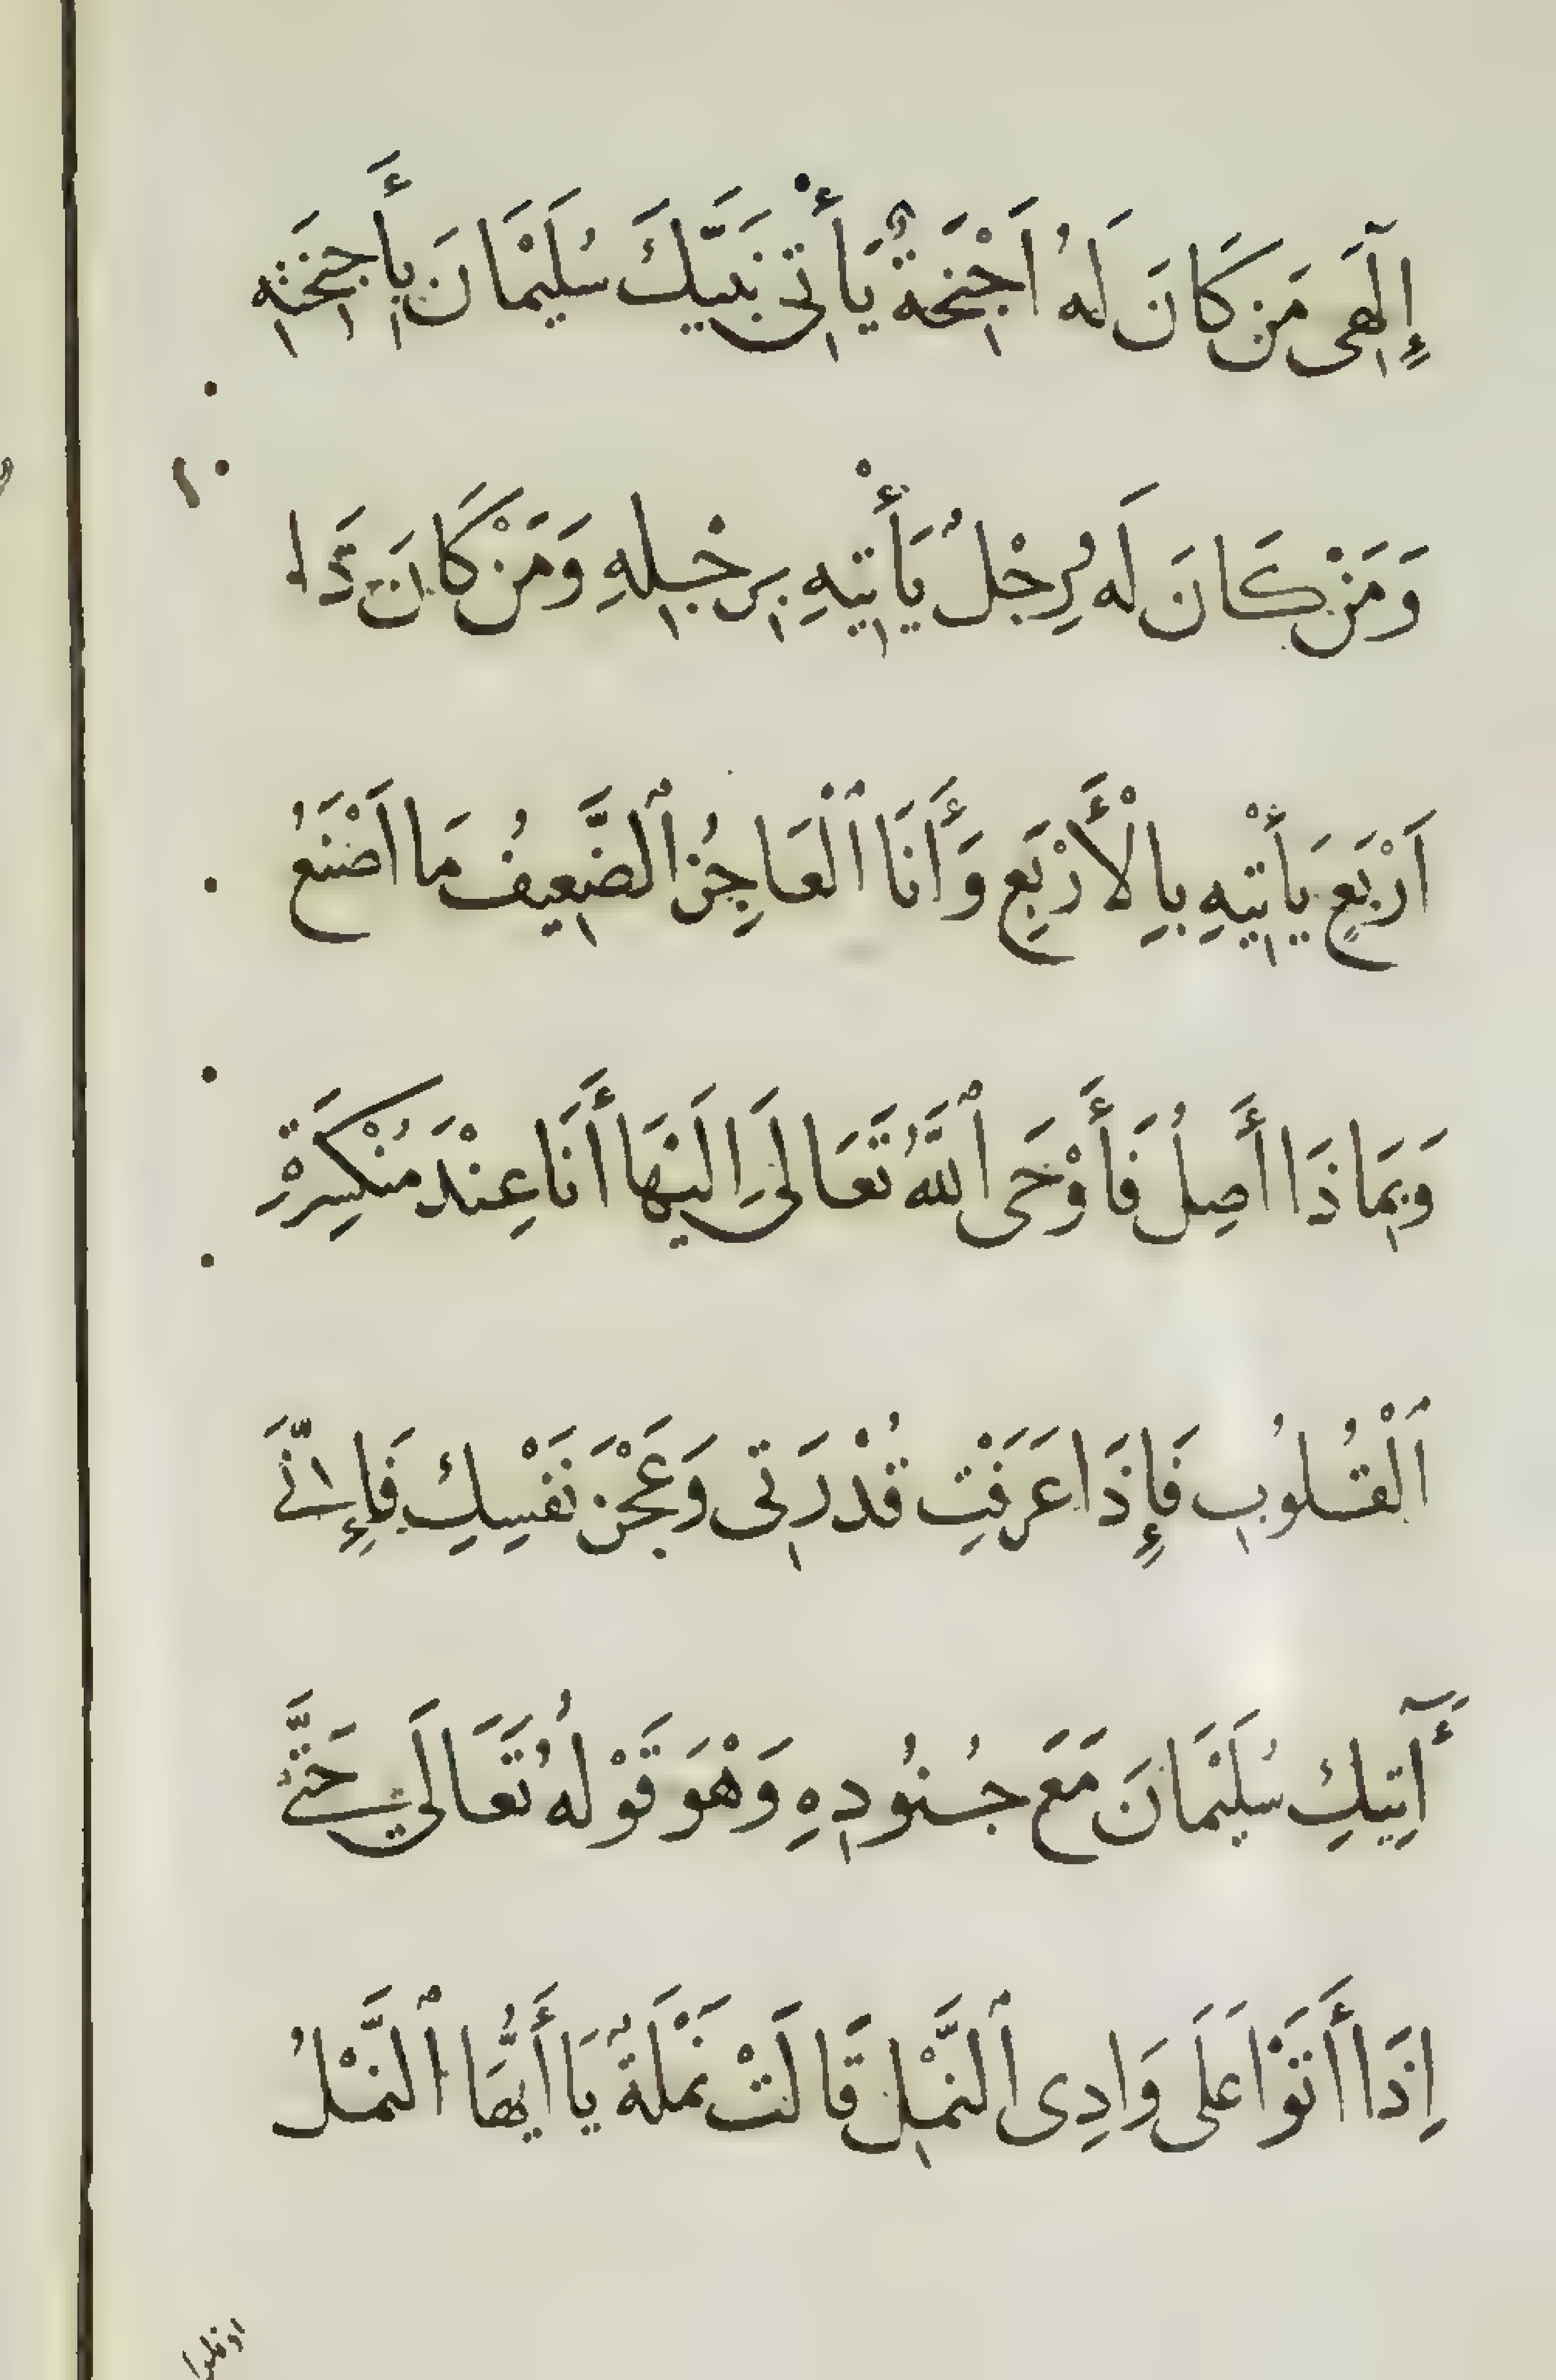 إِلٰهِى مَن كَانَ لَهُ اَجْنَحَةٌ يَأْتِى نَبِيَّكَ سُلَيْمَانَ بِأَجْنَحَتِهِ
وَمَنْ كَانَ لَهُ رِجْلٌ يَأْتِيهِ بِرِجْلِهِ وَمَنْ كَانَ ذَا
اَرْبَعٍ يَأْتِيهِ بِالْأَرْبَعِ وَأَنَا ٱلْعَاجِزُ ٱلضَّعِيفُ مَا اَصْنَعُ
وَبِمَاذَا أَصِلُ فَأَوْحَى ٱللَّهُ تَعَالَى اِلَيْهَا أَنَا عِنْدَ مُنْكَسِرَةْ
ٱلْقُلُوبِ فَإِذَا عَرَفْتِ قُدْرَتِى وَعَجْزَ نَفْسِكِ فَإِنِّى
آتِيكِ سُلَيْمَانَ مَعَ جُنُودِهِ وَهْوَ قَوْلُهُ تَعَالَى حَتَّى
اِذَا أَتَوْا عَلَى وَادِى ٱلنَّمْلِ قَالَتْ نَمْلَةٌ يَا أَيُّهَا ٱلنَّمْلُ